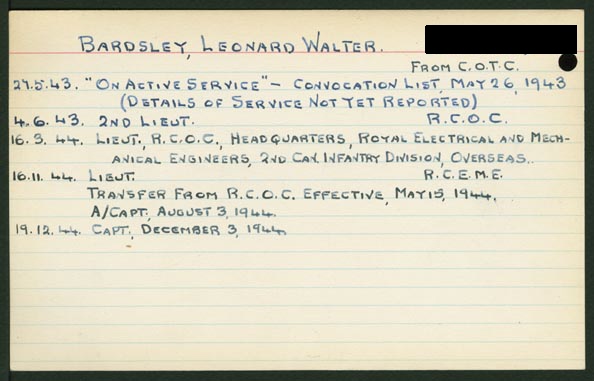 BARDSLEY, LEONARD WALTER.
FROM C.O.T.C.
27.5.43. "ON ACTIVE SERVICE" – CONVOCATION LIST, MAY 26, 1943
(DETAILS OF SERVICE NOT YET REPORTED)
4.6.43. 2ND LIEUT. R.C.O.C.
16.3.44. LIEUT., R.C.O.C., HEADQUARTERS, ROYAL ELECTRICAL AND MECH-
ANICAL ENGINEERS, 2ND CAN. INFANTRY DIVISION, OVERSEAS.
16.11.44. LIEUT. R.C.E.M.E.
TRANSFER FROM R.C.O.C. EFFECTIVE, MAY 15, 1944.
A/CAPT., AUGUST 3, 1944.
19.12.44. CAPT., DECEMBER 3, 1944.